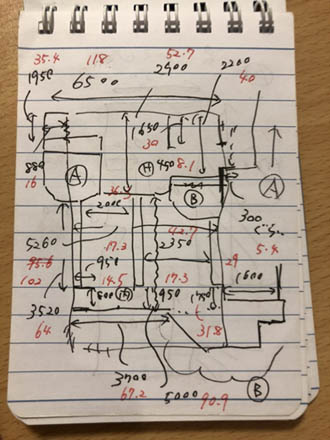 35.4 118 52.7
1950 6500 2900 2200
40
1650
30
880 H 450 8.1
16 A A
B
200
300
5260 42.7
17.2 2350 5.4
95.6 950 29
102 14.5 17.3 1600
800 950
3520
64 31.8
3700
67.2 5000 90.9 B